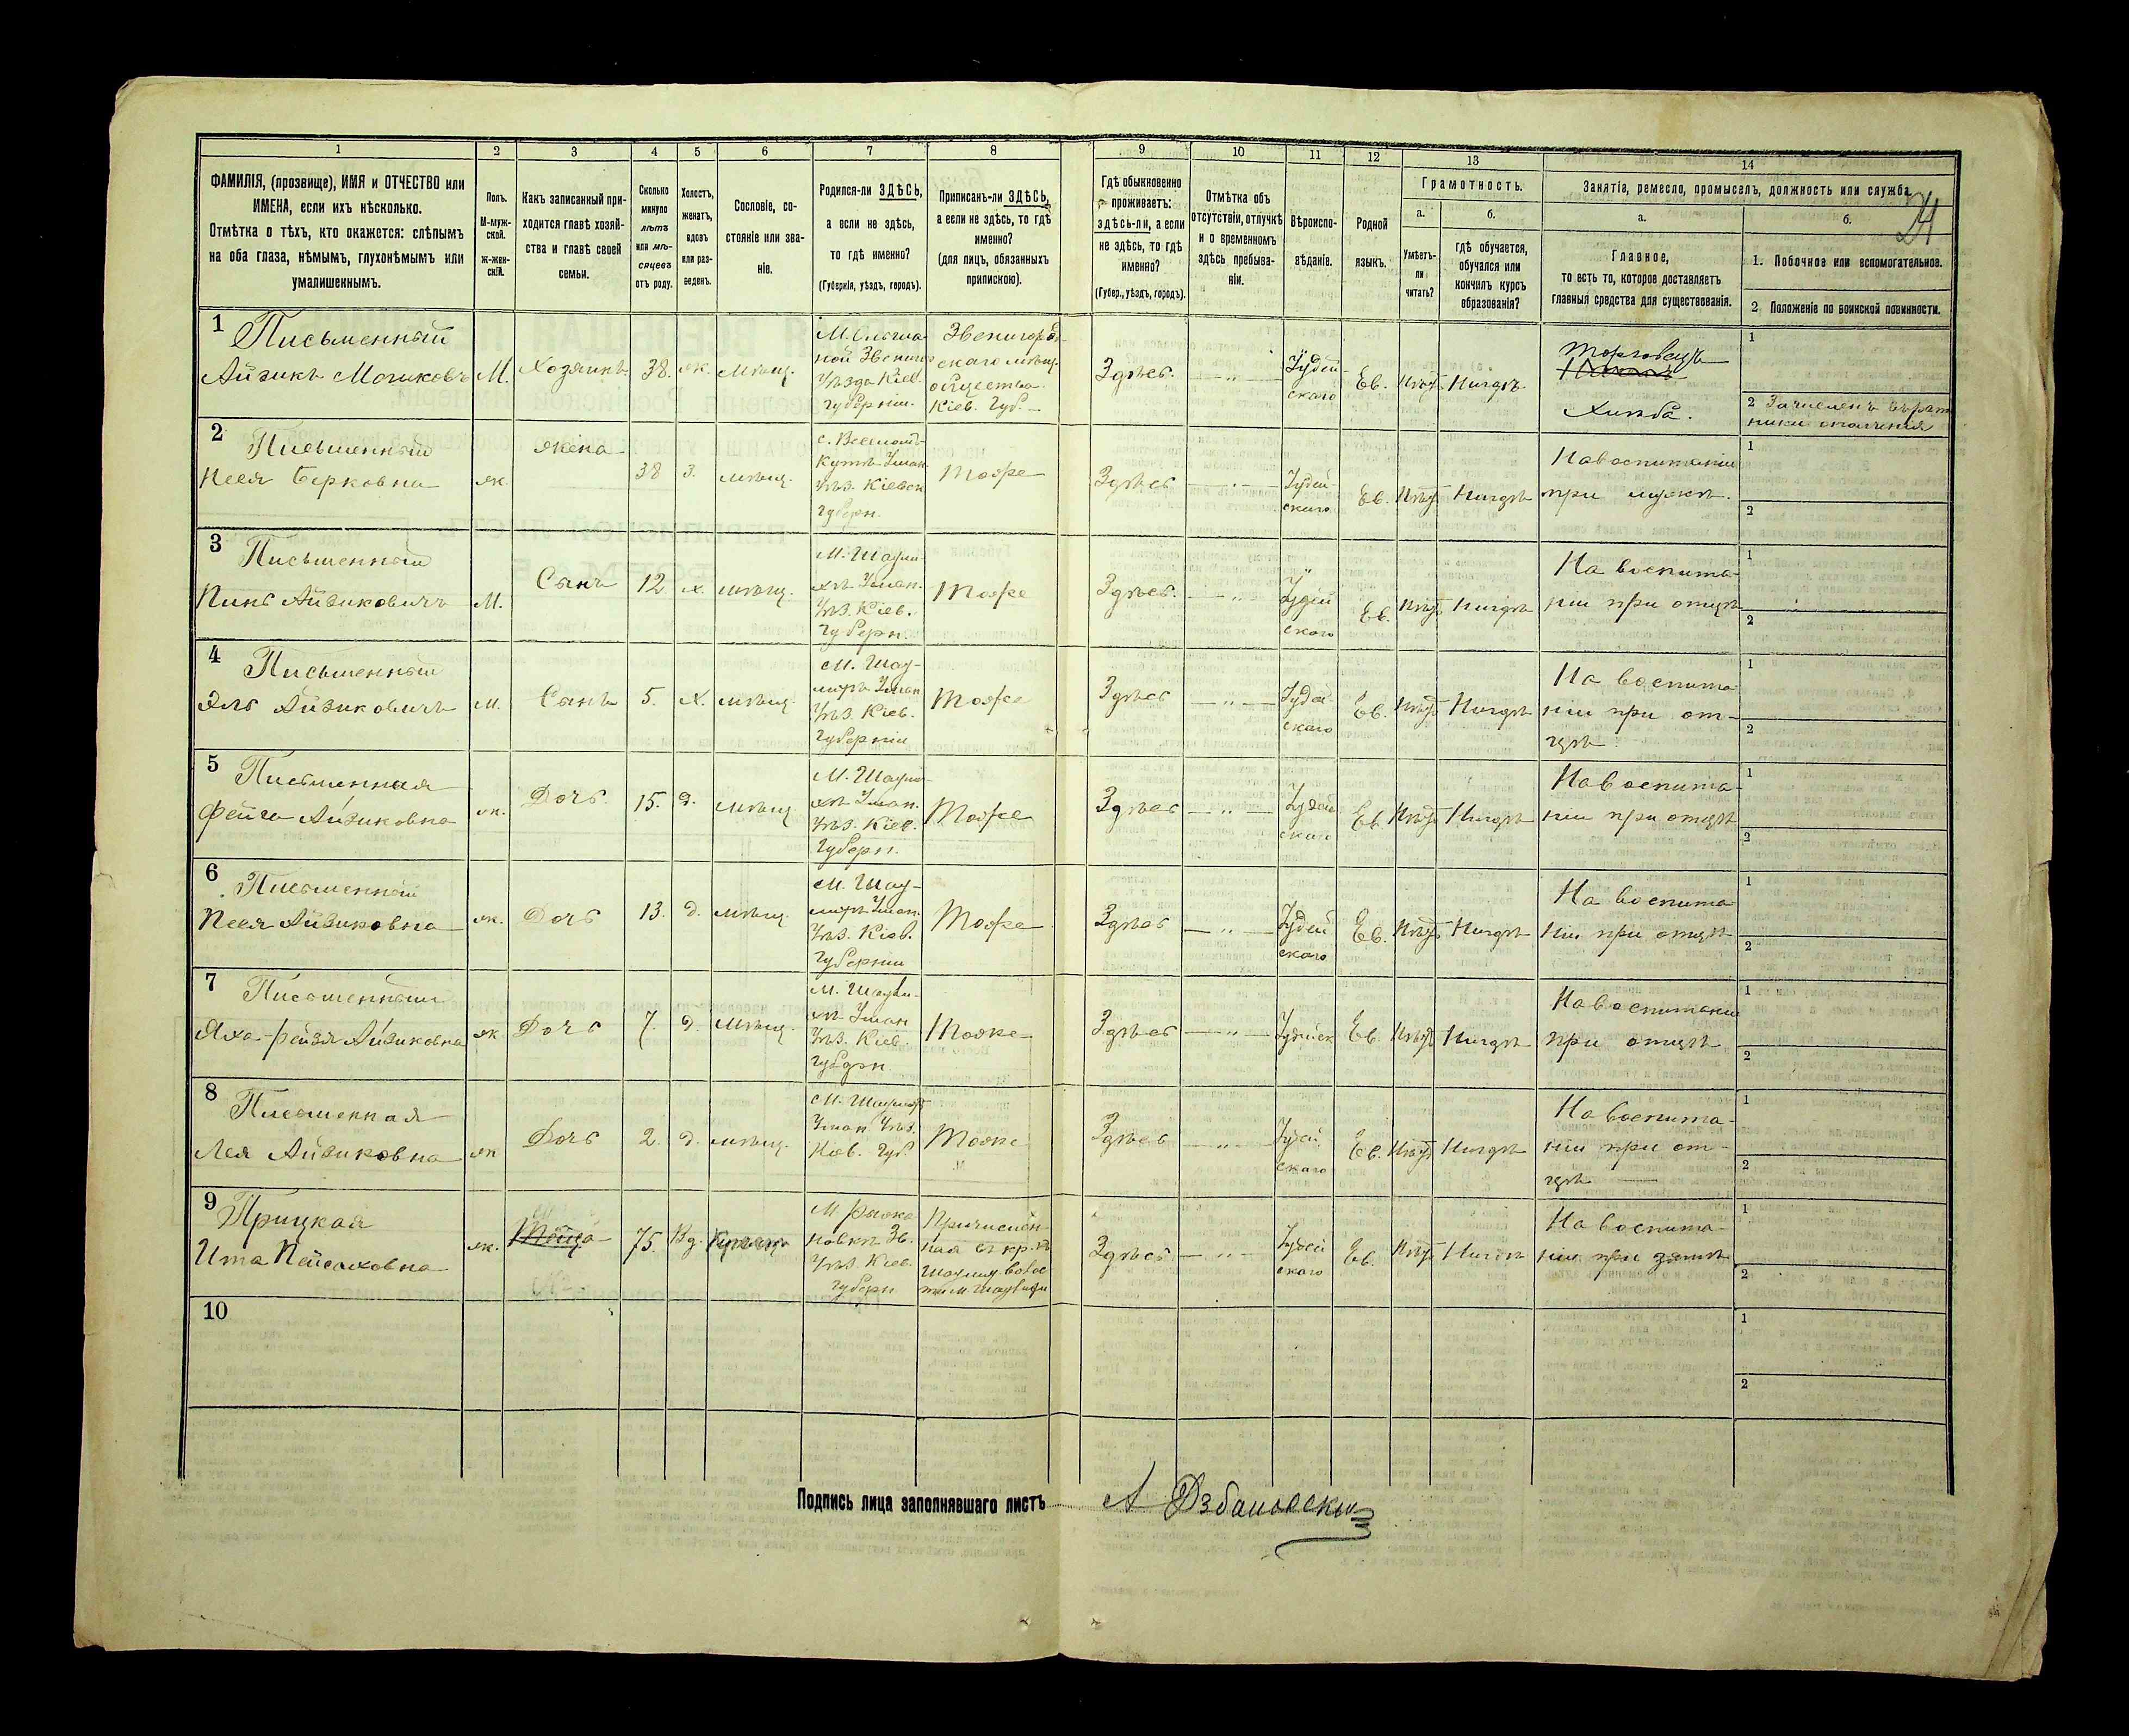 1
2
3
4
5
6
7
8
9
10
11
12
13
14
ФАМИЛІЯ, (прозвище), ИМЯ и ОТЧЕСТВО или
ИМЕНА, если ихъ нѣсколько.
Отмѣтка о тѣхъ, кто окажется: слѣпымъ
на оба глаза, нѣмымъ, глухонѣмымъ или
умалишеннымъ.
Полъ.
М-муж-
ской.
ж-жен-
скій.
Какъ записанный при-
ходится главѣ хозяй-
ства и главѣ своей
семьи.
Сколько
минуло
лѣтъ
или мѣ-
сяцевъ
отъ роду.
Холостъ,
женатъ,
вдовъ
или раз-
веденъ.
Сословіе, со-
стояніе или зва-
ніе.
Родился-ли ЗДѢСЬ,
а если не здѣсь,
то гдѣ именно?
(Губернія, уѣздъ, городъ).
Приписанъ-ли ЗДѢСЬ,
а если не здѣсь, то гдѣ
именно?
(для лицъ, обязанныхъ
припискою).
Гдѣ обыкновенно
проживаетъ:
здѣсь-ли, а если
не здѣсь, то гдѣ
именно?
(Губер., уѣздъ, городъ).
Отмѣтка объ
отсутствіи, отлучкѣ
и о временномъ
здѣсь пребыва-
ніи.
Вѣроиспо-
вѣданіе.
Родной
языкъ.
Грамотность.
а.
Умѣетъ-
ли
читать?
б.
гдѣ обучается,
обучался или
кончилъ курсъ
образованія?
Занятіе, ремесло, промыселъ, должность или служба.
24
а.
Главное,
то есть то, которое доставляетъ
главныя средства для существованія.
б.
1. Побочное или вспомогательное.
2 Положеніе по воинской повинности.
1
Письменный
Айзикъ
М.
Хозяинъ
38.
ж.
мѣщ.
Уѣзда Кіев.
губерніи.
Звенигород-
скаго мѣщ.
общества
Кіев. Губ.
Здѣсь.
— „ —
Іудей-
скаго
Ев.
Нигдѣ.
Торговецъ
Хлѣба.
1
2 Зачисленъ въ рат
ники ополченія
2
Письменный
Песя Берковна
ж.
жена
38
З.
мѣщ.
Уѣз. Кіевск
Губерн.
Тоже
Здѣсь
— „ —
Іудей-
скаго
Ев.
Нигдѣ
На воспитаніи
при мужѣ.
1
2
3
Письменный
Пинь Айзиковичъ
М.
Сынъ
12
х.
мѣщ.
Уѣз. Кіев.
Губерн.
Тоже
Здѣсь.
— „ —
Іудей
скаго
Ев.
Нигдѣ
На воспита-
ніи при отцѣ
1
2
4
Письменный
Эль Айзиковичъ
М.
Сынъ
5.
х.
мѣщ.
Уѣз. Кіев.
Губерніи
Тоже
Здѣсь
— „ —
Іудей-
скаго
Ев.
Нигдѣ
На воспита-
ніи при от-
цѣ
1
2
5
Письменная
Фейга Айзиковна
ж.
Дочь.
15.
д.
мѣщ.
Уѣз. Кіев.
Губерн.
Тоже
Здѣсь
— „ —
Іудей
скаго
Ев.
Нигдѣ
На воспита-
ніи при отцѣ
1
2
6
Письменный
Песя Айзиковна
ж.
Дочь
13.
д.
мѣщ.
Уѣз. Кіев.
Губерніи
Тоже
Здѣсь
— „ —
Іудей
скаго
Ев.
Нигдѣ
На воспита
ніи при отцѣ
1
2
7
Письменный
Яха-рейзя Айзиковна
ж
Дочь
7.
д.
мѣщ.
Уѣз. Кіев.
Губерн.
Тоже
Здѣсь
— „ —
Іудейск
Ев.
Нигдѣ
На воспитаніи
при отцѣ
1
2
8
Письменная
Лея Айзиковна
ж
Дочь
2.
д.
мѣщ.
Уман. Уѣз.
Кіев. Губ.
Тоже
Здѣсь
— „ —
Іудей
скаго
Ев.
Нигдѣ
На воспита-
ніи при от-
цѣ
1
2
9
Ита Пейсаховна
ж.
Теща
75.
Вд.
Уѣз. Кіев.
Губерн
Причислен-
ная
Здѣсь
— „ —
Іудей
скаго
Ев.
Нигдѣ
На воспита-
ніи при зятѣ
1
2
10
1
2
Подпись лица заполнявшаго листъ
А Дзбановскій